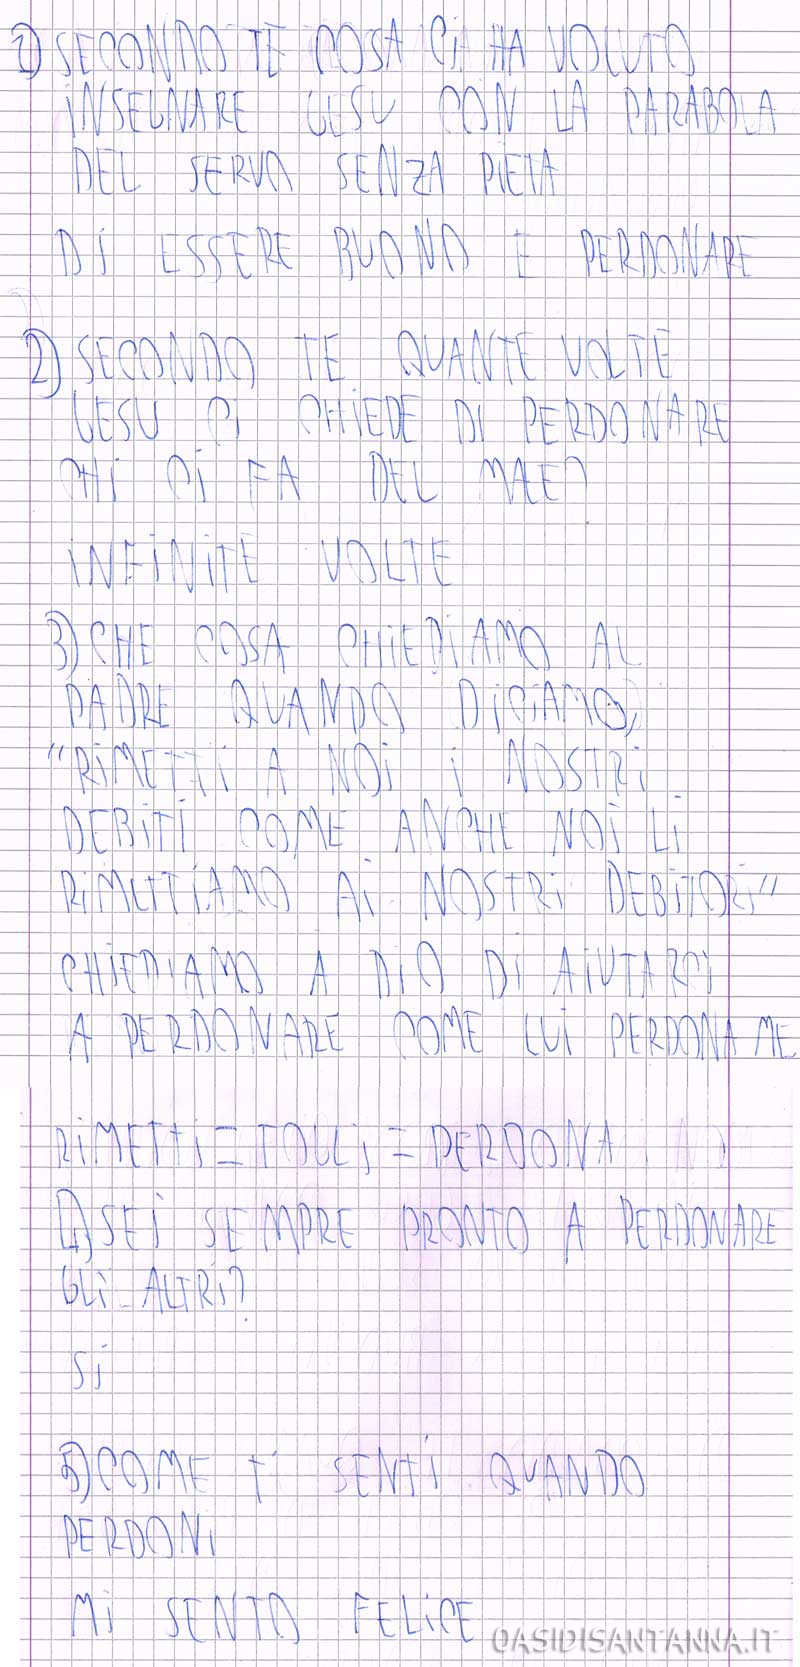 1) SECONDO TE COSA CI HA VOLUTO
INSEGNARE GESU CON LA PARABOLA
DEL SERVO SENZA PIETA
DI ESSERE BUONO E PERDONARE
2) SECONDO TE QUANTE VOLTE
GESU CI CHIEDE DI PERDONARE
CHI CI FA DEL MALE?
INFINITE VOLTE
3) CHE COSA CHIEDIAMO AL
PADRE QUANDO DICIAMO,
"RIMETTI A NOI I NOSTRI
DEBITI COME ANCHE NOI LI
RIMETTIAMO AI NOSTRI DEBITORI"
CHIEDIAMO A DIO DI AIUTARCI
A PERDONARE COME LUI PERDONA ME
RIMETTI = TOGLI = PERDONA
4) SEI SEMPRE PRONTO A PERDONARE
GLI ALTRI?
SI
5) COME TI SENTI QUANDO
PERDONI
MI SENTO FELICE
OASIDISANTANNA.IT